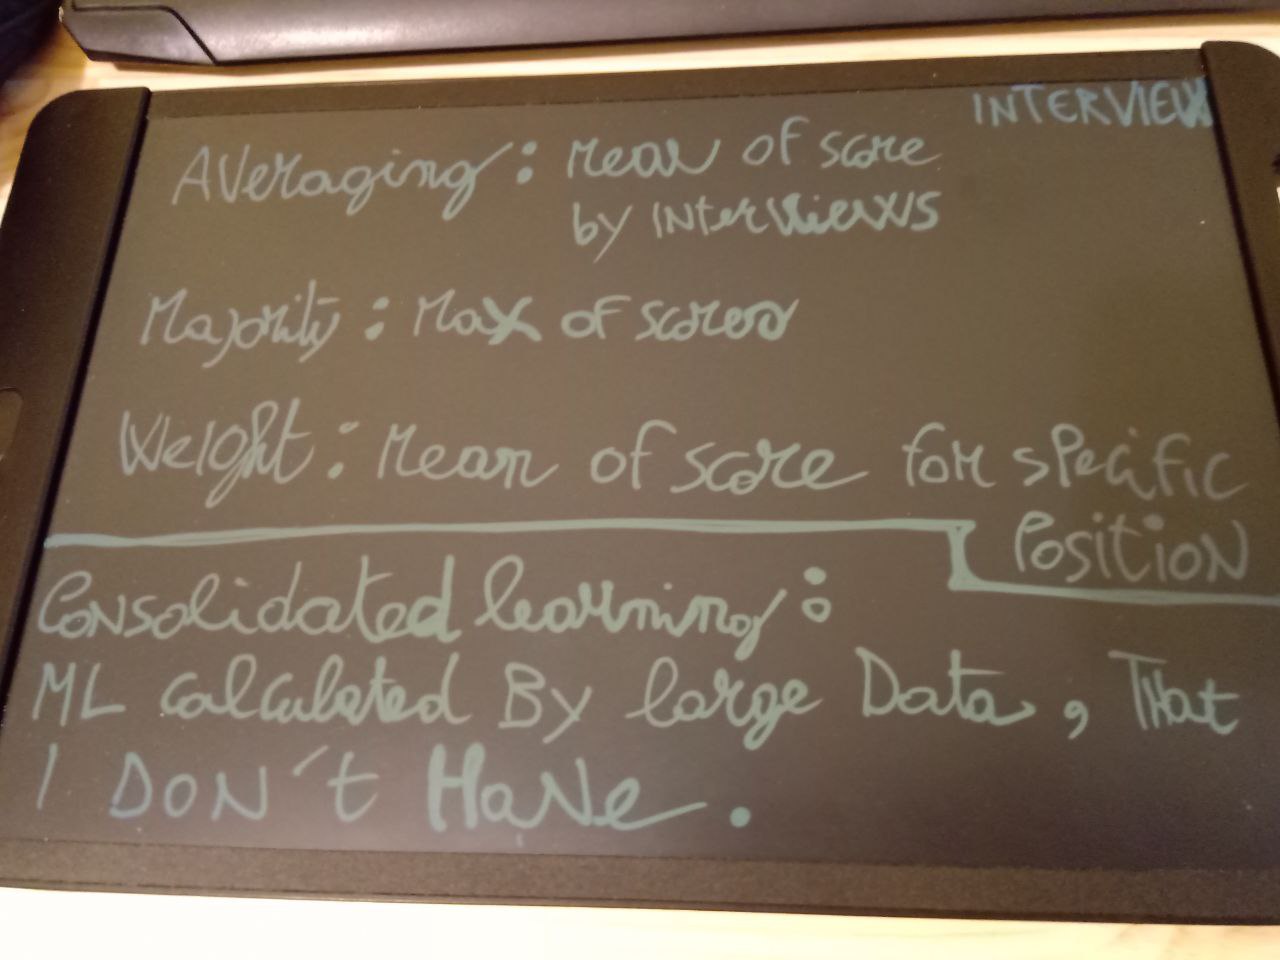 INTERVIEW
Averaging: Mean of score
by Interviews
Majority: Max of scores
Weight: Mean of score for specific
Position
Consolidated learning:
ML calculated By large Data, That
I DON't Have.